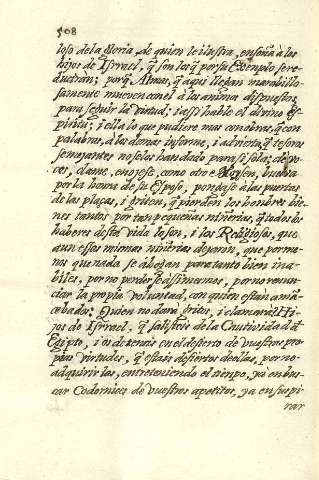 508
loso de la Gloria, de quien le ilustra, enseña à los
hijos de Israel, q̃ son los q̃ por su Exemplo se re-
duzirán; porq̃ Almas, q̃ aqui llegan marabillo-
samente mueven con el à los animos dispuestos
para seguir la virtud; i assi hable el divino Es-
piritu; i ella lo que pudiere mas con obras, q̃ con
palabras, à las demas informe, i advierta, q̃ tesoros
semejantes no se los han dado para si sola; dè vo-
ces, clame, enojese, como otro Moysen, buelva
por la honra de su Esposo, pongase à las puertas
de las plaças, i griten, q̃ pierden los hombres bie-
nes tantos por tan pequeñas niñerias, q̃ todos los
haberes desta vida lo son, i los Religiosos, que
aun essas mismas niñerias dejaron, que por me-
nos que nada se ahogan para tanto bien inha-
biles, por no perder, q̃ desimemos, por no renun-
ciar la propia voluntad, con quien estais amã-
cebados: Quien no darà gritos, i clamarà? Hi-
jos de Israel, q̃ salisteis de la Cautividad de
Egipto, i os deteneis en el desierto de vuestras pro-
pias virtudes, q̃ estais desiertos de ellas, por no
adquirirlas, entreteniendo el tiempo, ya en bus-
car Codornices de vuestros apetitos, ya en suspi-
rar